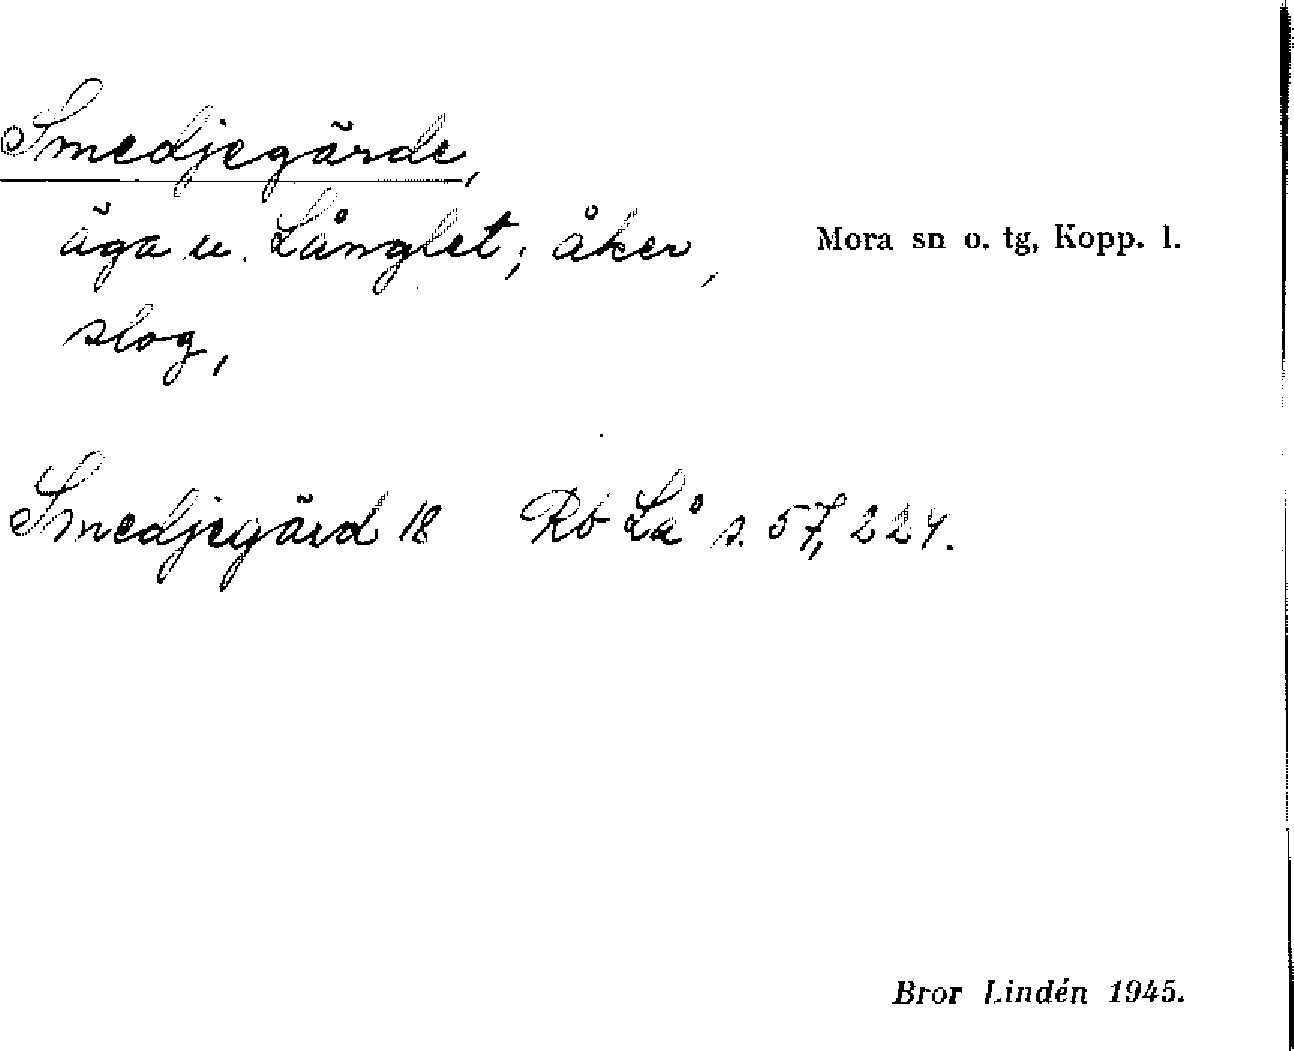 Smedjegärde,
äga u. Långlet; åker,
slog,
Mora sn o. tg, Kopp. l.
Smedjegärd 18 Rb Lå s. 57, 224.
Bror Lindén 1945.